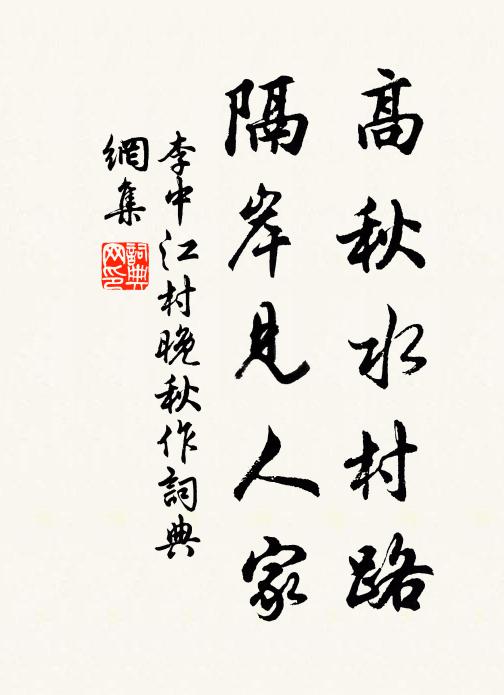 高秋水村路
隔岸見人家
李中江村晚秋作詞典
網集
詞典
网印